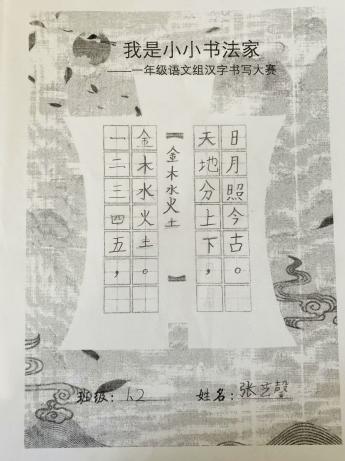 我是小小书法家
——一年级语文组汉字书写大赛
【金木水火土】
一二三四五，
金木水火土。
天地分上下，
日月照今古。
班级：1.2
姓名：张